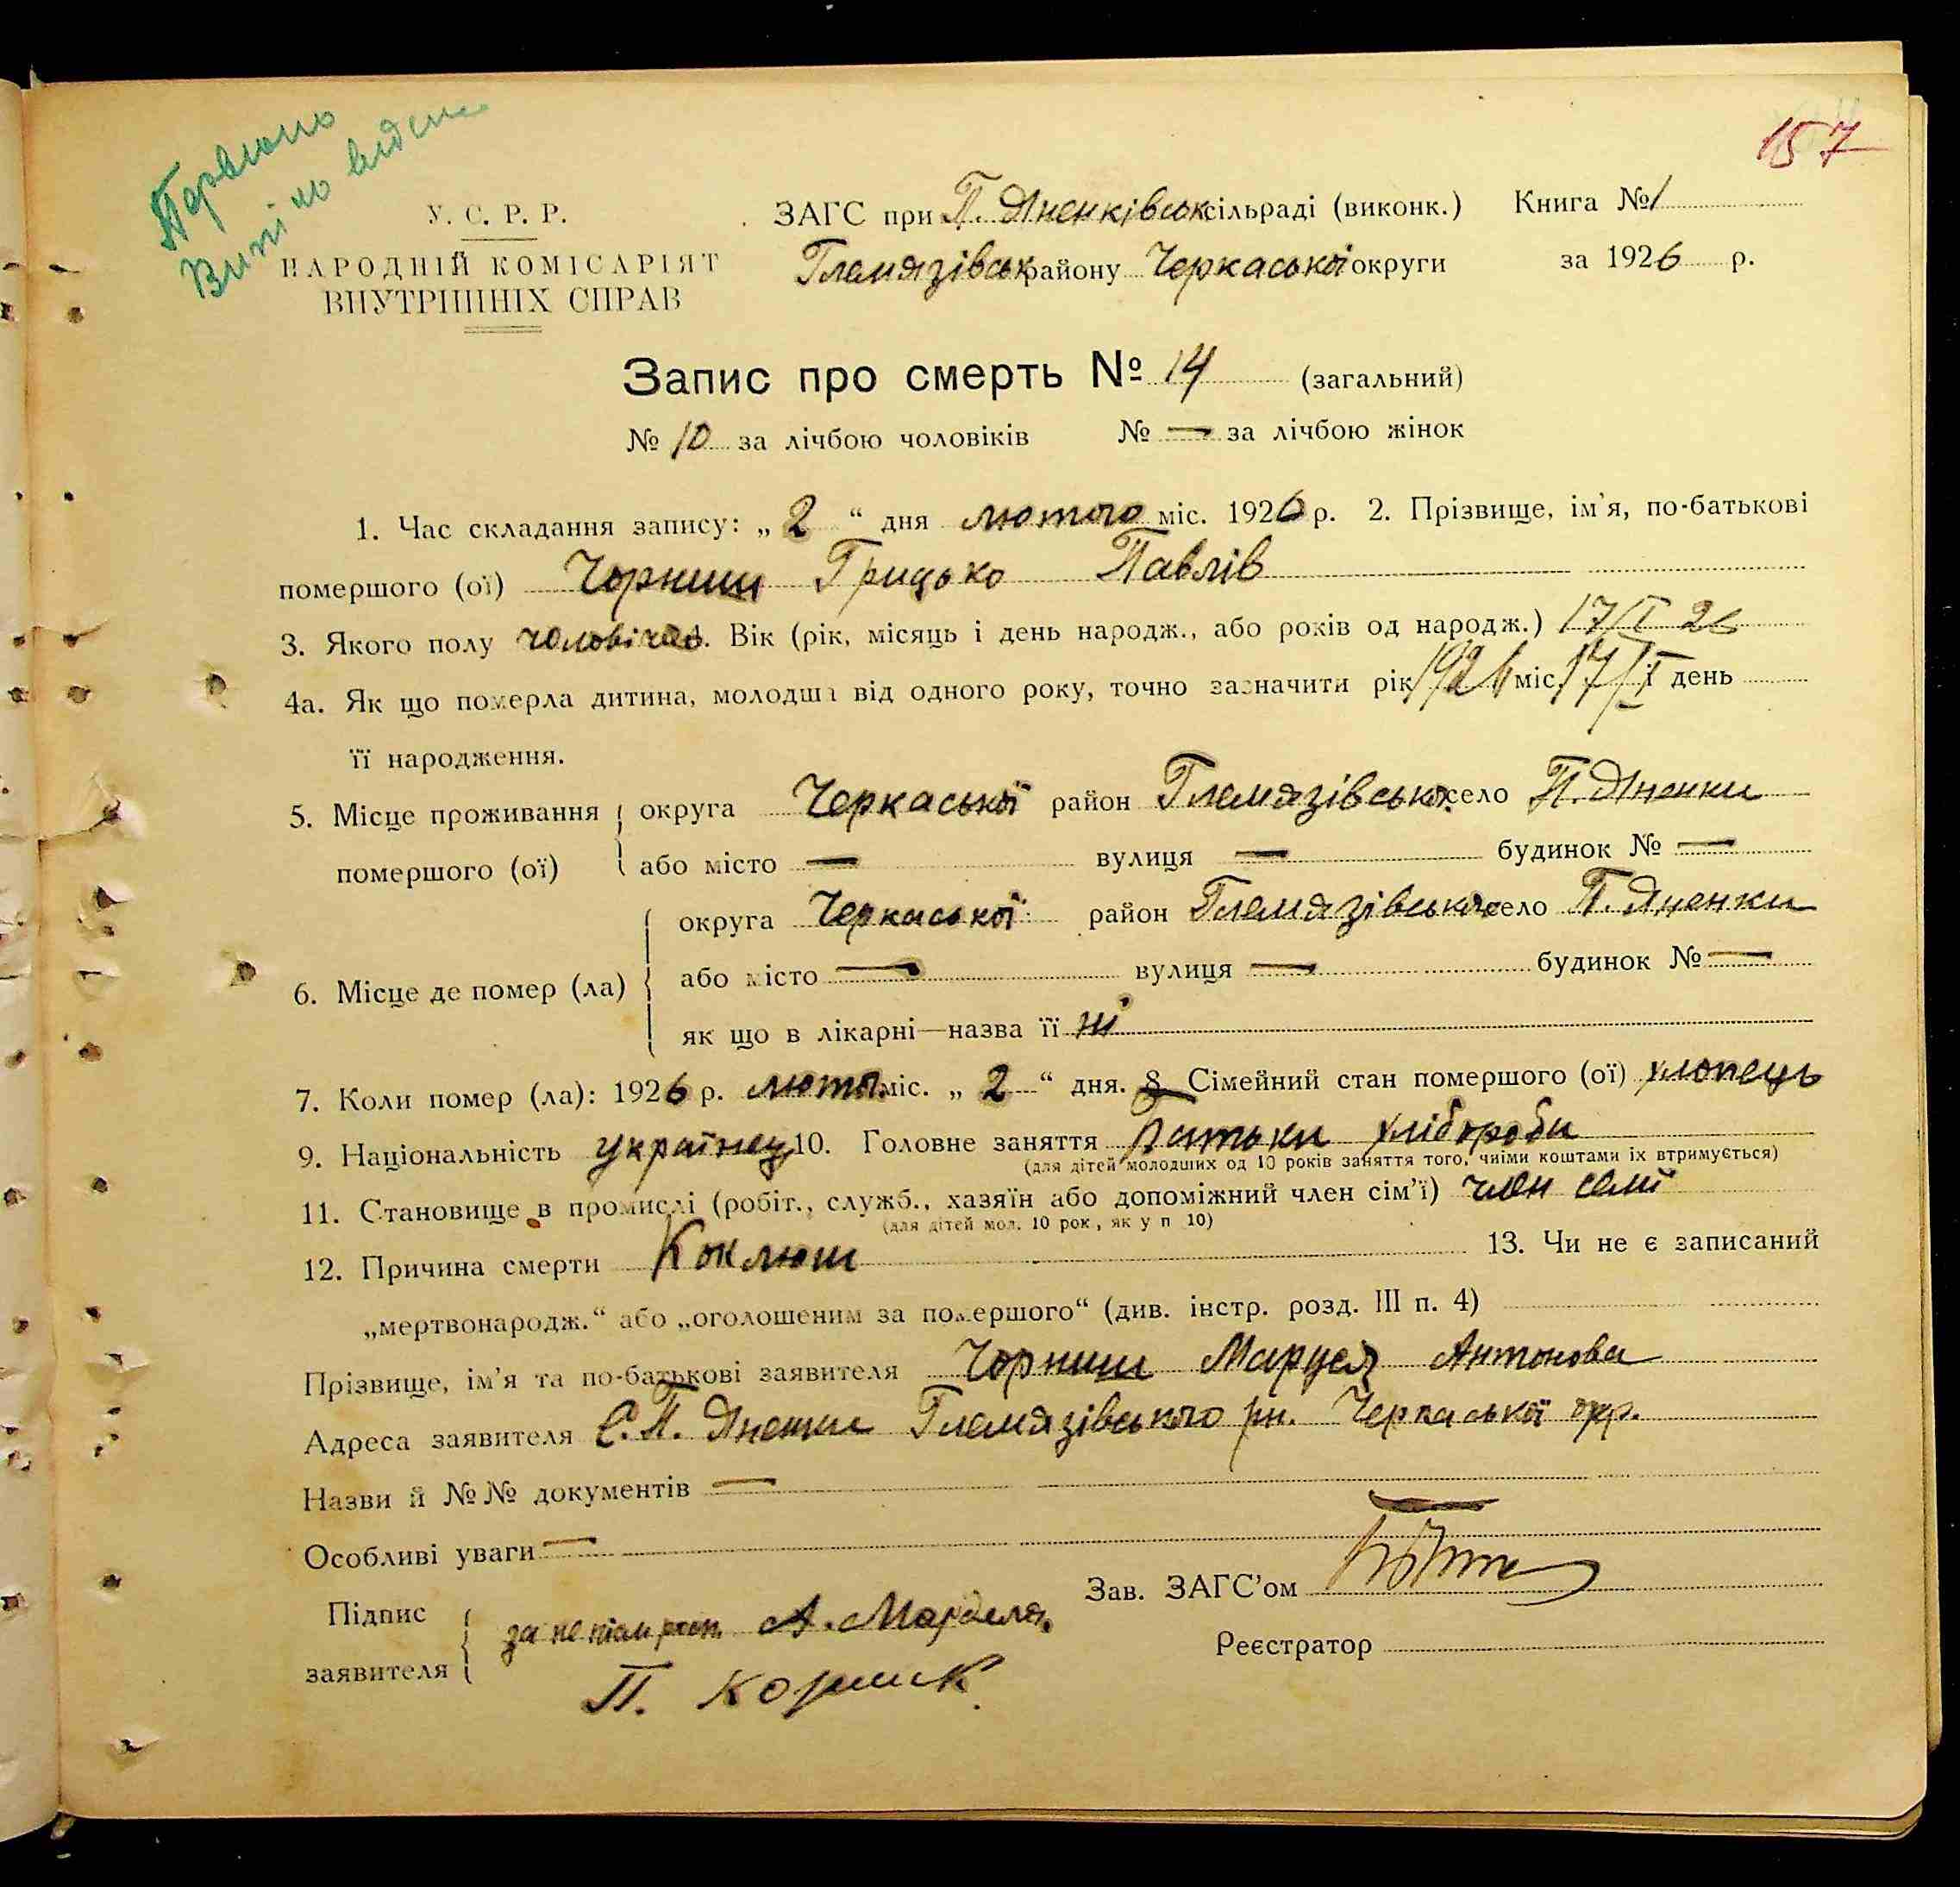 157
У. С. Р. Р.
НАРОДНІЙ КОМІСАРІЯТ
ВНУТРІШНІХ СПРАВ
ЗАГС при П. Яненківськ сільраді (виконк.) Книга № 1
Гельмязівськ району Черкаської округи за 1926 р.
Запис про смерть № 14 (загальний)
№ 10 за лічбою чоловіків № — за лічбою жінок
1. Час складання запису: „ 2 “ дня лютого міс. 1926 р. 2. Прізвище, ім'я, по-батькові
помершого (ої) Чорниш Грицько Павлів
3. Якого полу чоловічого 4. Вік (рік, місяць і день народж., або років од народж.) 17/I 26
4а. Як що померла дитина, молодша від одного року, точно зазначити рік 1926 міс 17/I і день
її народження.
5. Місце проживання помершого (ої) округа Черкаської район Глемязівсько. село П. Яненки
або місто — вулиця — будинок № —
6. Місце де помер (ла) округа Черкаської район Глемязівсько село П. Яненки
або місто — вулиця — будинок № —
як що в лікарні—назва її ні
7. Коли помер (ла): 1926 р. лютого міс. „ 2 “ дня. 8 Сімейний стан помершого (ої) хлопець
9. Національність українец 10. Головне заняття Батьки хлібороби
(для дітей молодших од 10 років заняття того, чиїми коштами їх втримується)
11. Становище в промислі (робіт., служб., хазяїн або допоміжний член сім'ї) член семї
(для дітей мол. 10 рок, як у п 10)
12. Причина смерти Коклюш 13. Чи не є записаний
„мертвонародж.“ або „оголошеним за помершого“ (див. інстр. розд. III п. 4)
Прізвище, ім'я та по-батькові заявителя Чорниш Маруся Антонова
Адреса заявителя С. П. Яненки Глемязівського рн. Черкаської окр.
Назви й №№ документів —
Особливі уваги —
Зав. ЗАГС'ом
Підпис заявителя за неписьмен. А.
П. Коршик
Реєстратор